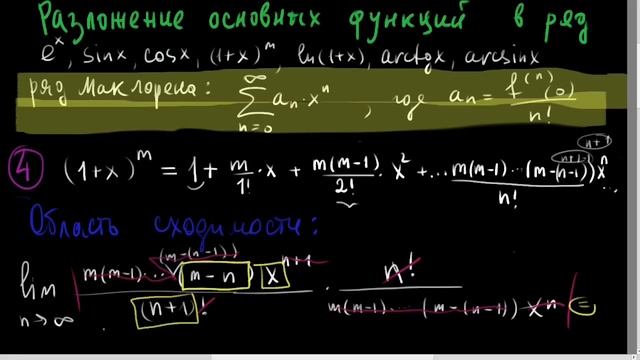 Разложение основных функций в ряд
e^x, sinx, cosx, (1+x)^m, ln(1+x), arctgx, arcsinx
ряд Маклорена: ∑_{n=0}^{∞} a_n·x^n, где a_n = f^{(n)}(0)/n!
n+1
n+1-1
④ (1+x)^m = 1 + m/1!·x + m(m-1)/2!·x^2 + ... m(m-1)...(m-(n-1))x^n/n! ...
Область сходимости:
(m-(n-1))
lim_{n→∞} | m(m-1)...(m-n) x^{n+1}/(n+1)! · n!/m(m-1)...(m-(n-1)) x^n | =